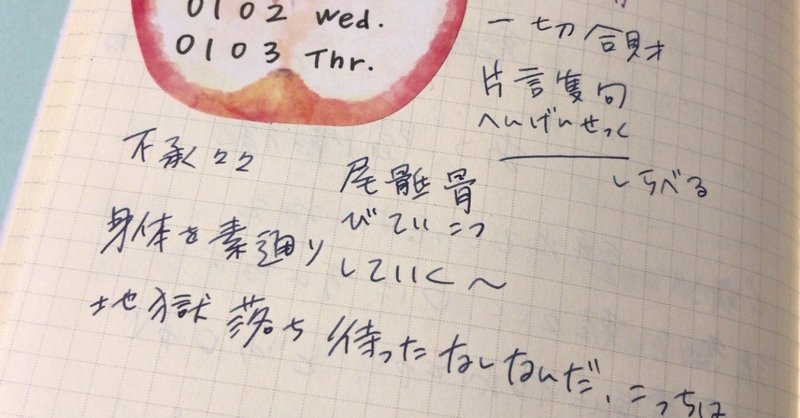 0102 Wed.
0103 Thr.
一切合財
片言隻句
へんげんせっく
しらべる
不承々々
尾骶骨
びていこつ
身体を素通りしていく〜
地獄落ち待ったなしなんだ、こっちは